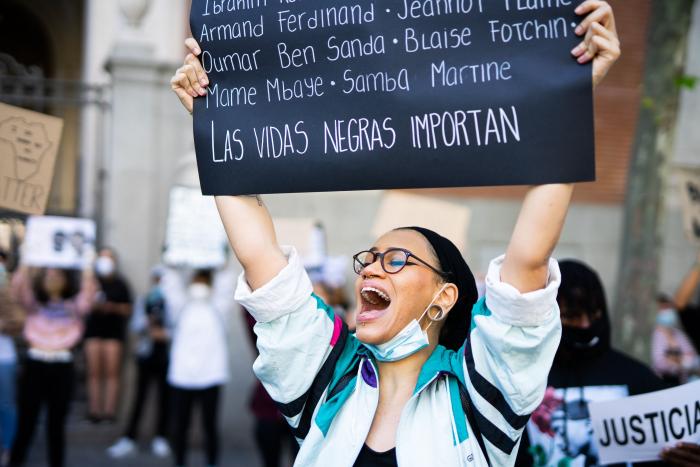 Ibrahim
Armand Ferdinand · Jeannot Flame
Oumar Ben Sanda · Blaise Fotchin ·
Mame Mbaye · Samba Martine
LAS VIDAS NEGRAS IMPORTAN
TTER
JUSTICIA